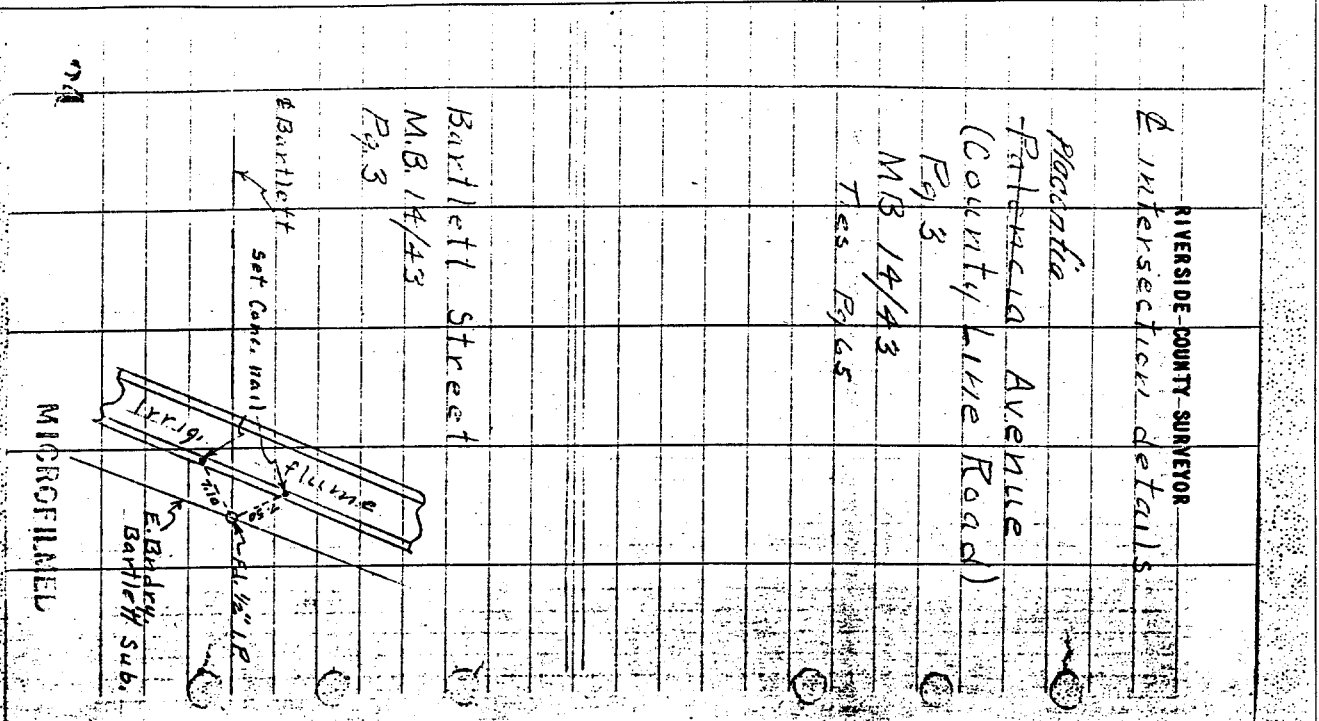 RIVERSIDE COUNTY SURVEYOR
℄ intersection details
Placentia
Palencia Avenue
(County Line Road)
Pg 3
MB 14/43
Ties Pg 65
Bartlett Street
M.B. 14/43
Pg. 3
℄ Bartlett
Set Conc. nail
Irrig. flume
Fd. ½" I.P.
E. Bndry.
Bartlett Sub.
MICROFILMED